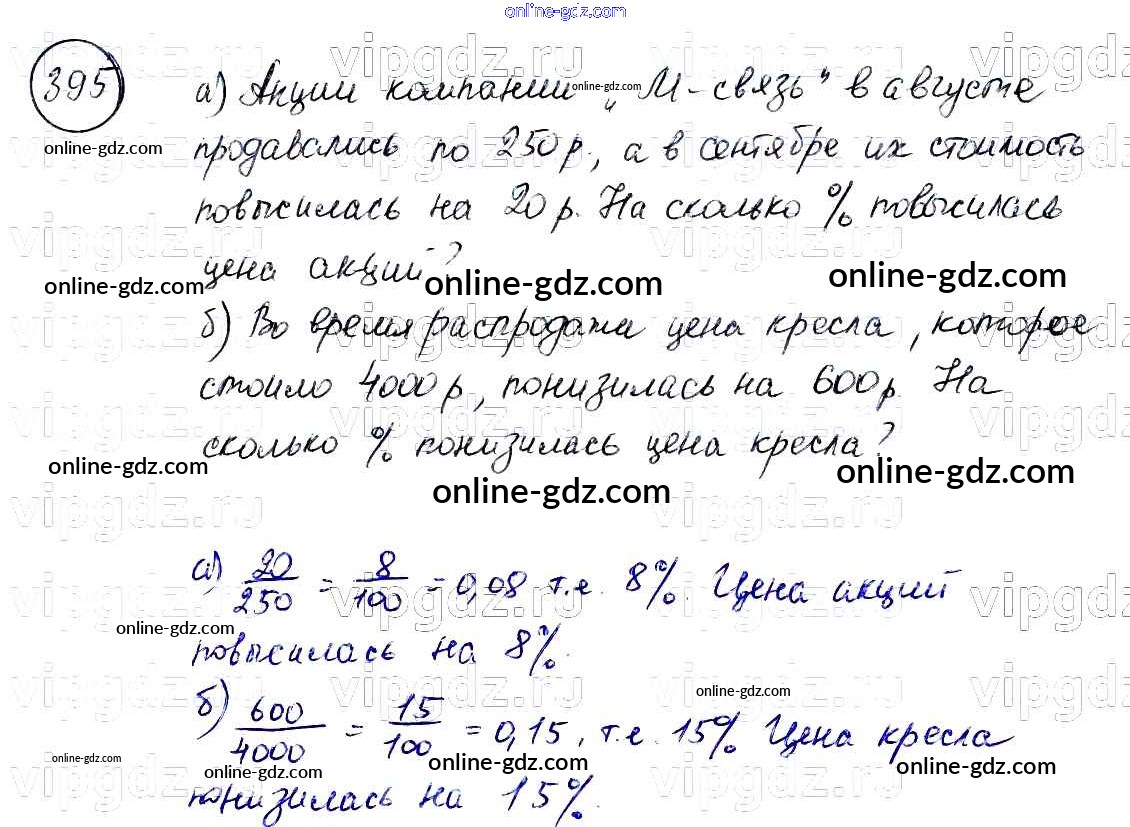 online-gdz.com
395
а) Акции компании „М-связь" в августе
продавались по 250 р., а в сентябре их стоимость
повысилась на 20 р. На сколько % повысилась
цена акций?
б) Во время распродажи цена кресла, которое
стоило 4000 р, понизилась на 600 р. На
сколько % понизилась цена кресла?
а) 20/250 = 8/100 = 0,08 т.е. 8%. Цена акций
повысилась на 8%.
б) 600/4000 = 15/100 = 0,15, т.е. 15% Цена кресла
понизилась на 15%.